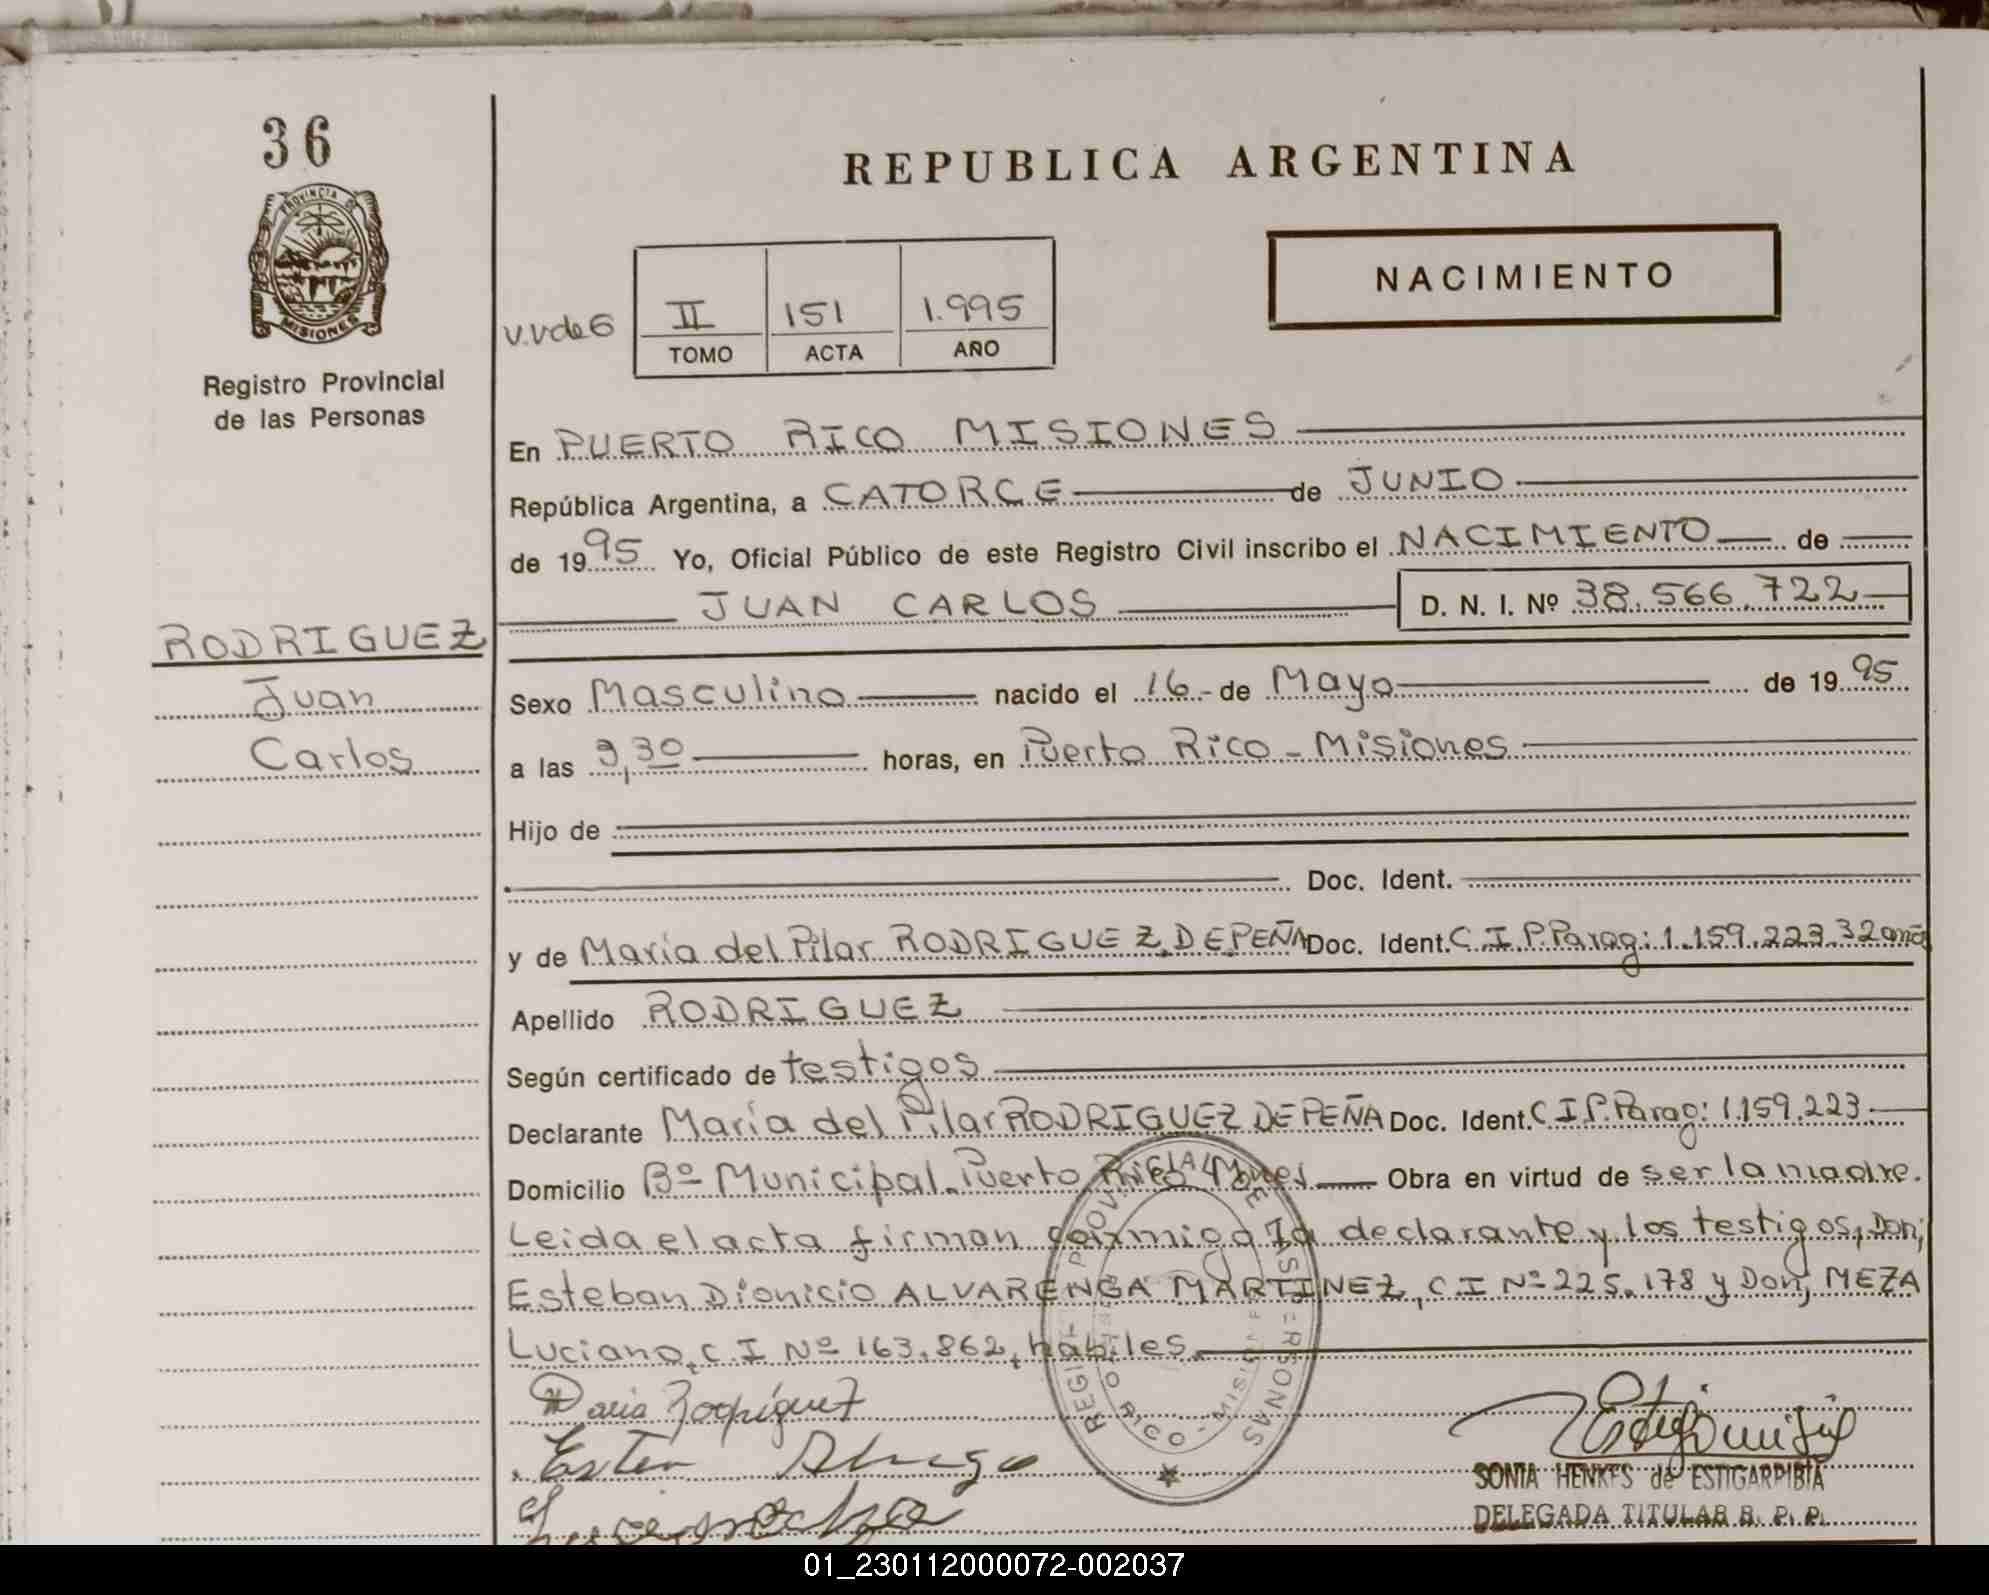 36
PROVINCIA DE
MISIONES
Registro Provincial
de las Personas
REPUBLICA ARGENTINA
NACIMIENTO
v.v de 6
II 151 1.995
TOMO ACTA AÑO
En PUERTO RICO MISIONES
República Argentina, a CATORCE de JUNIO
de 1995 Yo, Oficial Público de este Registro Civil inscribo el NACIMIENTO de
JUAN CARLOS D. N. I. Nº 38.566.722
RODRIGUEZ
Juan
Carlos
Sexo Masculino nacido el 16 - de Mayo de 1995
a las 9,30 horas, en Puerto Rico - Misiones
Hijo de
Doc. Ident.
y de María del Pilar RODRIGUEZ DE PEÑA Doc. Ident. C.I.P.Parag: 1.159.223.32 años
Apellido RODRIGUEZ
Según certificado de testigos
Declarante María del Pilar RODRIGUEZ DE PEÑA Doc. Ident. C I P. Parag: 1.159.223.
Domicilio Bº Municipal. Puerto Rico Mnes Obra en virtud de ser la madre.
Leida el acta firman conmigo la declarante y los testigos, Don;
Esteban Dionicio ALVARENGA MARTINEZ, C.I Nº 225.178 y Don; MEZA
Luciano, C.I Nº 163.862, hábiles.
REGISTRO PROVINCIAL DE LAS PERSONAS
PUERTO RICO - MISIONES
Maria Rodriguez
SONIA HENKES de ESTIGARRIBIA
DELEGADA TITULAR R. P. P.
01_230112000072-002037